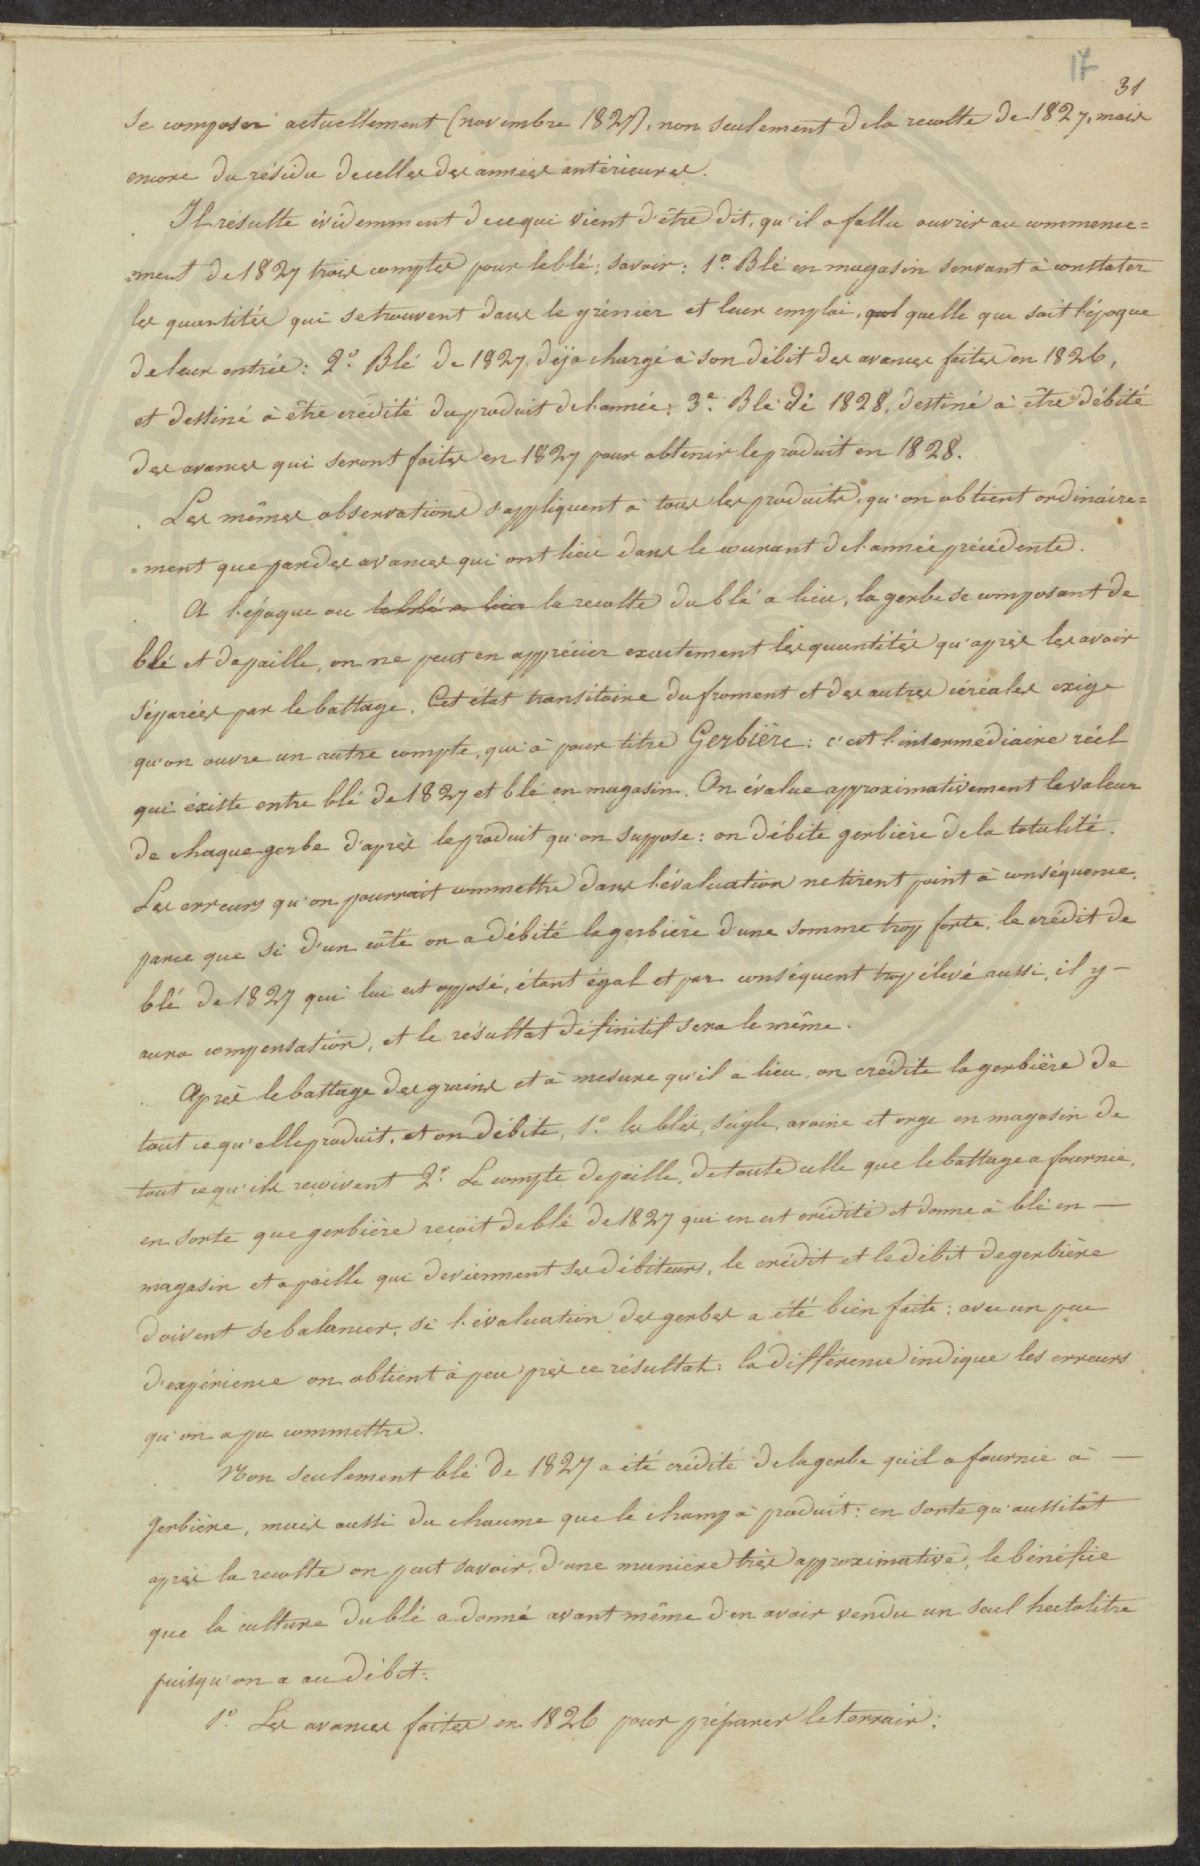 17
31
se composer actuellement (novembre 1827), non seulement de la recolte de 1827, mais
encore du résidu de celles des années antérieures.
Il résulte évidemment de ce qui vient d'être dit, qu'il a fallu ouvrir au commence=
=ment de 1827 trois comptes pour le blé; savoir: 1.° Blé en magasin servant à constater
les quantités qui se trouvent dans le grénier et leur emploi, quel quelle que soit l'époque
de leur entrée: 2.° Blé de 1827 déjà chargé à son débit des avances faites en 1826,
et destiné à être crédité du produit de l'année: 3.° Blé de 1828, destiné à être débité
des avances qui seront faites en 1827 pour obtenir le produit en 1828.
Les mêmes observations s'appliquent à tous les produits, qu'on obtient ordinaire=
=ment que par des avances qui ont lieu dans le courant de l'année précédente.
A l'époque ou le blé a lieu la recolte du blé a lieu, la gerbe se composant de
blé et de paille, on ne peut en apprécier exactement les quantités qu'après les avoir
séparées par le battage. Cet état transitoire du froment et des autres céréales exige
qu'on ouvre un autre compte, qui a pour titre Gerbière: c'est l'intermédiaire réel
qui éxiste entre blé de 1827 et blé en magasin. On évalue approximativement la valeur
de chaque gerbe d'après le produit qu'on suppose: on débite gerbière de la totalité.
Les erreurs qu'on pourrait commettre dans l'évaluation ne tirent point à conséquence,
parce que si d'un côté on a débité la gerbière d'une somme trop forte, le crédit de
blé de 1827 qui lui est opposé, étant égal et par conséquent trop élevé aussi, il y —
aura compensation, et le résultat définitif sera le même.
Après le battage des grains et à mesure qu'il a lieu, on crédite la gerbière de
tout ce qu'elle produit, et on débite, 1.° les blés, seigle, avoine et orge en magasin de
tout ce qu'ils reçoivent 2.° Le compte de paille, de toute celle que le battage a fournie,
en sorte que gerbière reçoit de blé de 1827 qui en est crédité et donne à blé en —
magasin et a paille qui deviennent ses débiteurs, le crédit et le débit de gerbière
doivent se balancer, si l'évaluation des gerbes a été bien faite: avec un peu
d'expérience on obtient à peu près ce résultat: la différence indique les erreurs
qu'on a pu commettre.
Non seulement blé de 1827 a été crédité de la gerbe qu'il a fournie à —
gerbière, mais aussi du chaume que le champ a produit: en sorte qu'aussitôt
après la recolte on peut savoir, d'une manière très approximative, le bénéfice
que la culture du blé a donné avant même d'en avoir vendu un seul hectolitre
puisqu'on a au débit:
1.° Les avances faites en 1826 pour préparer le terrain: